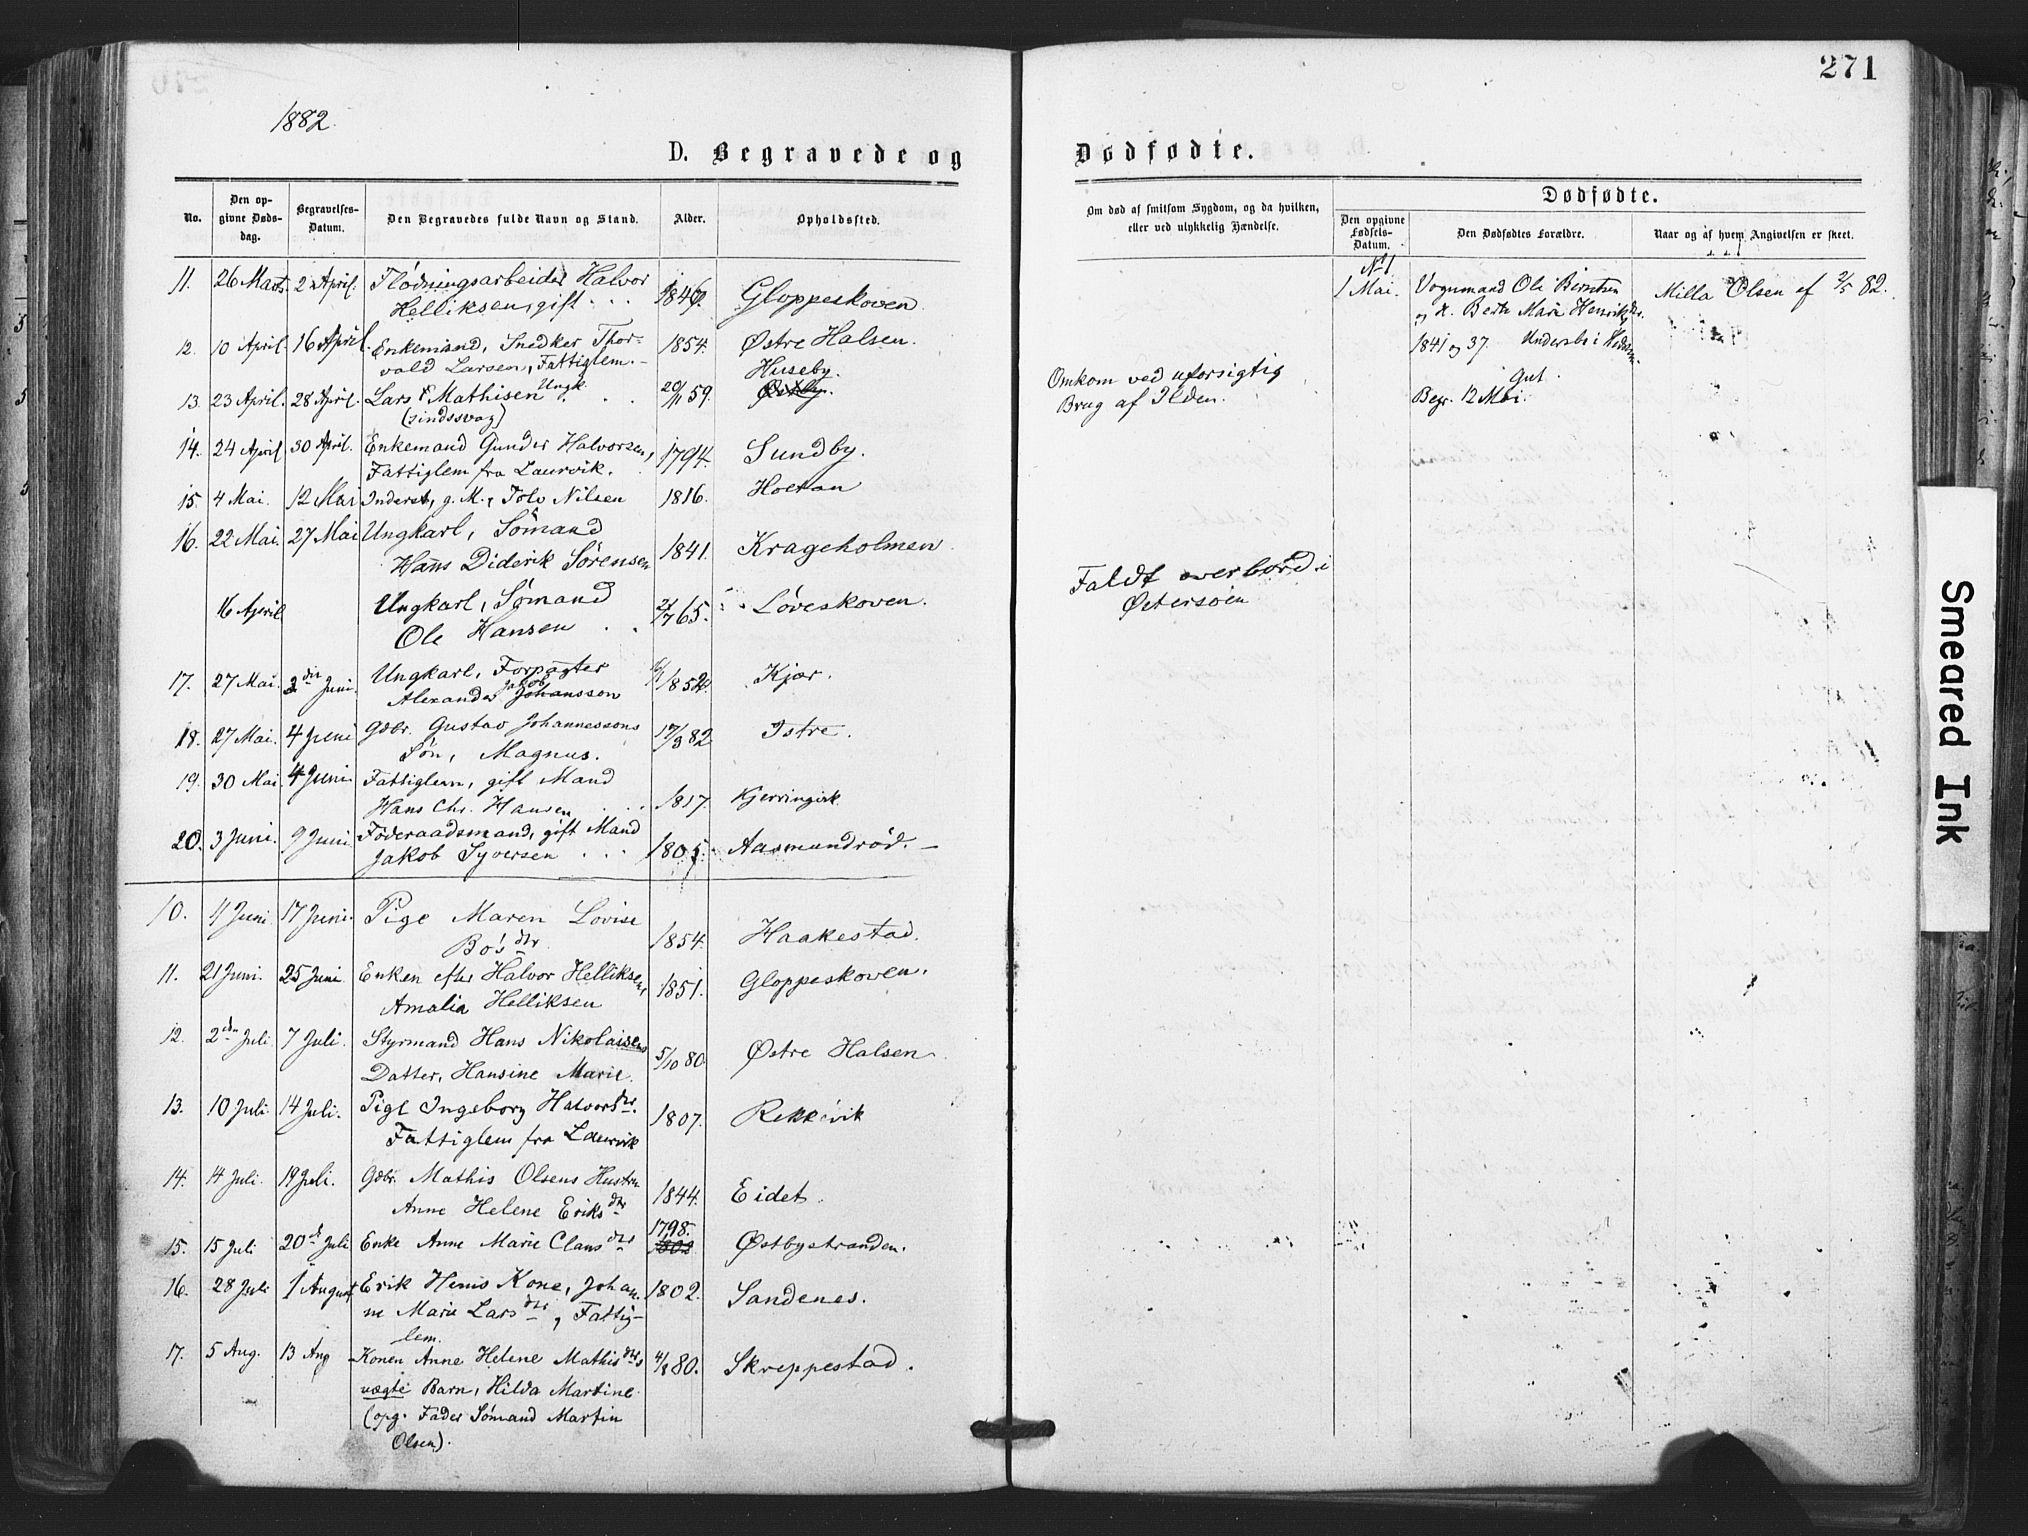 271
1882.
D. Begravede og Dødfødte.
No.
Den opgivne Dødsdag.
Begravelses-Datum.
Den Begravedes fulde Navn og Stand.
Alder.
Opholdssted.
Om død af smitsom Sygdom, og da hvilken, eller ved ulykkelig Hændelse.
Dødfødte.
Den opgivne Fødsels-Datum.
Den Dødfødtes Forældre.
Naar og af hvem Angivelsen er skeet.
11. 26 Marts. 2 April. Flødningsarbeider Halvor
Helliksen, gift . . . Gloppeskoven
12. 10 April 16 April. Enkemand, Snedker Thor- 1854. Østre Halsen.
vald Larsen, Fattiglem.
13. 23 April. 28 April. Lars Mathisen Ungk. 20/11 59. Huseby.
Østby.
(sindssvag)
Omkom ved uforsigtig
Brug af Ilden.
14. 24 April 30 April. Enkemand Gunder Halvorsen, 1794. Sundby.
Fattiglem fra Laurvik.
15. 4 Mai. 12 Mai Inderst, g. M., Tolv Nilsen 1816. Holtan
16. 22 Mai. 27 Mai Ungkarl, Sømand
Hans Diderik Sørensen 1841. Krageholmen.
16 April Ungkarl, Sømand 65. Løveskoven.
Ole Hansen . .
Faldt overbord i
Østersøen
17. 27 Mai. 2den Juni. Ungkarl, Forpagter 1852. Kjær.
Alexander Jakob Johansson
18. 27 Mai. 4 Juni Gdbr. Gustav Johannessons 17/3 82 Istre.
Søn, Magnus.
19. 30 Mai 4 Juni Fattiglem, gift Mand
Hans Chr. Hansen . . . 1817. Kjerringvik
20. 3 Juni. 9 Juni Føderaadsmand, gift Mand
Jakob Syversen . . . 1805. Aasmundrød.
10. 4 Juni 17 Juni. Pige Maren Lovise
Bosdtr. 1854. Haakestad.
11. 21 Juni. 25 Juni Enken efter Halvor Helliksen, 1851. Gloppeskoven.
Amalia Helliksen
12. 2den Juli 7 Juli. Styrmand Hans Nikolaisens
Datter, Hansine Marie. 5/10 80. Østre Halsen
13. 10 Juli 14 Juli. Pige Ingeborg Halvorsdtr. 1807. Rekkevik
Fattiglem fra Laurvik
14. 14 Juli. 19 Juli. Gdbr. Mathis Olsens Hustru
Anne Helene Eriksdtr 1844. Eidet.
15. 15 Juli 20de Juli Enke Anne Marie Clausdtr 1798. Østbystranden.
16. 28 Juli 1 August Erik Henis Kone, Johan- 1802. Sandenes.
ne Marie Larsdtr, Fattig-
lem.
17. 5 Aug. 13 Aug Konen Anne Helene Mathisdtrs 4/8 80. Skreppestad.
uægte Barn, Hilda Martine
(opg. Fader Sømand Martin
Olsen).
No 1
1 Mai. Vognmand Ole Berntsen Milla Olsen af 2/5 82.
og H. Berte Marie Henriksdtr.
1841 og 37.
Gut.
Begr. 12 Mai.
Smeared Ink